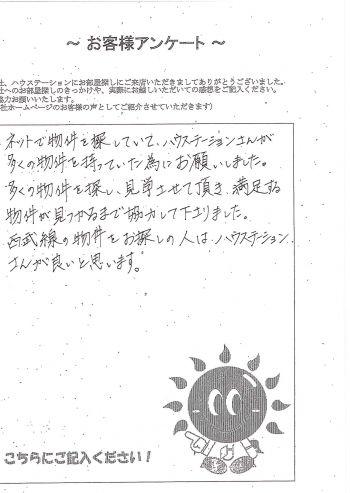 ～ お客様アンケート ～
社、ハウステーションにお部屋探しにご来店いただきましてありがとうございました。
社へのお部屋探しのきっかけや、実際にお越しいただいての感想をご記入ください。
協力お願いいたします。
社ホームページのお客様の声としてご紹介させていただきます）
ネットで物件を探していて、ハウステーションさんが
多くの物件を持っていた為にお願いしました。
多くの物件を探し、見学させて頂き、満足する
物件が見つかるまで協力して下さりました。
西武線の物件をお探しの人は、ハウステーション
さんが良いと思います。
こちらにご記入ください！